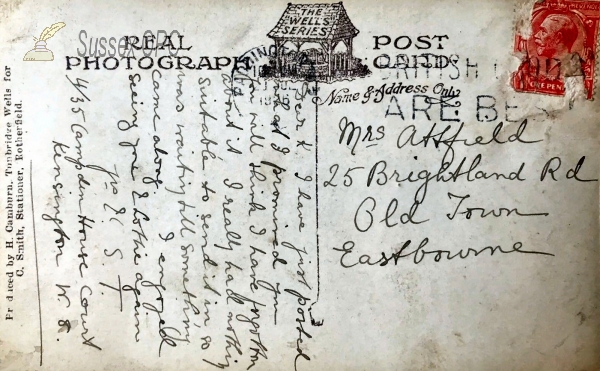 Sussex OPC
REAL PHOTOGRAPH
THE
WELLS
SERIES
POST CARD
Name & Address Only
BRITISH
ARE BE
Mrs Attfield
25 Brightland Rd
Old Town
Eastbourne
Dear K. I have just posted
that I promised you
You will think I have forgotten
about it I really had nothing
suitable to send it in so
was waiting till something
came along I enjoyed
seeing you & Lottie again
Yrs E S T
4/35 Campden House Court
Kensington W.8.
Produced by H. Camburn, Tunbridge Wells for
C. Smith, Stationer, Rotherfield.